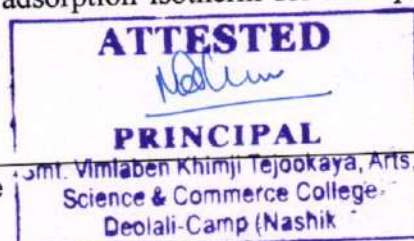 adsorption isotherm
ATTESTED
PRINCIPAL
Smt. Vimlaben Khimji Tejookaya, Arts,
Science & Commerce College
Deolali-Camp (Nashik